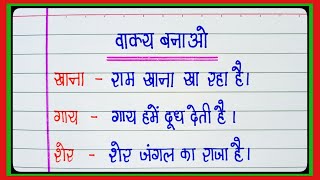 वाक्य बनाओ
खाना - राम खाना खा रहा है।
गाय - गाय हमें दूध देती है।
शेर - शेर जंगल का राजा है।